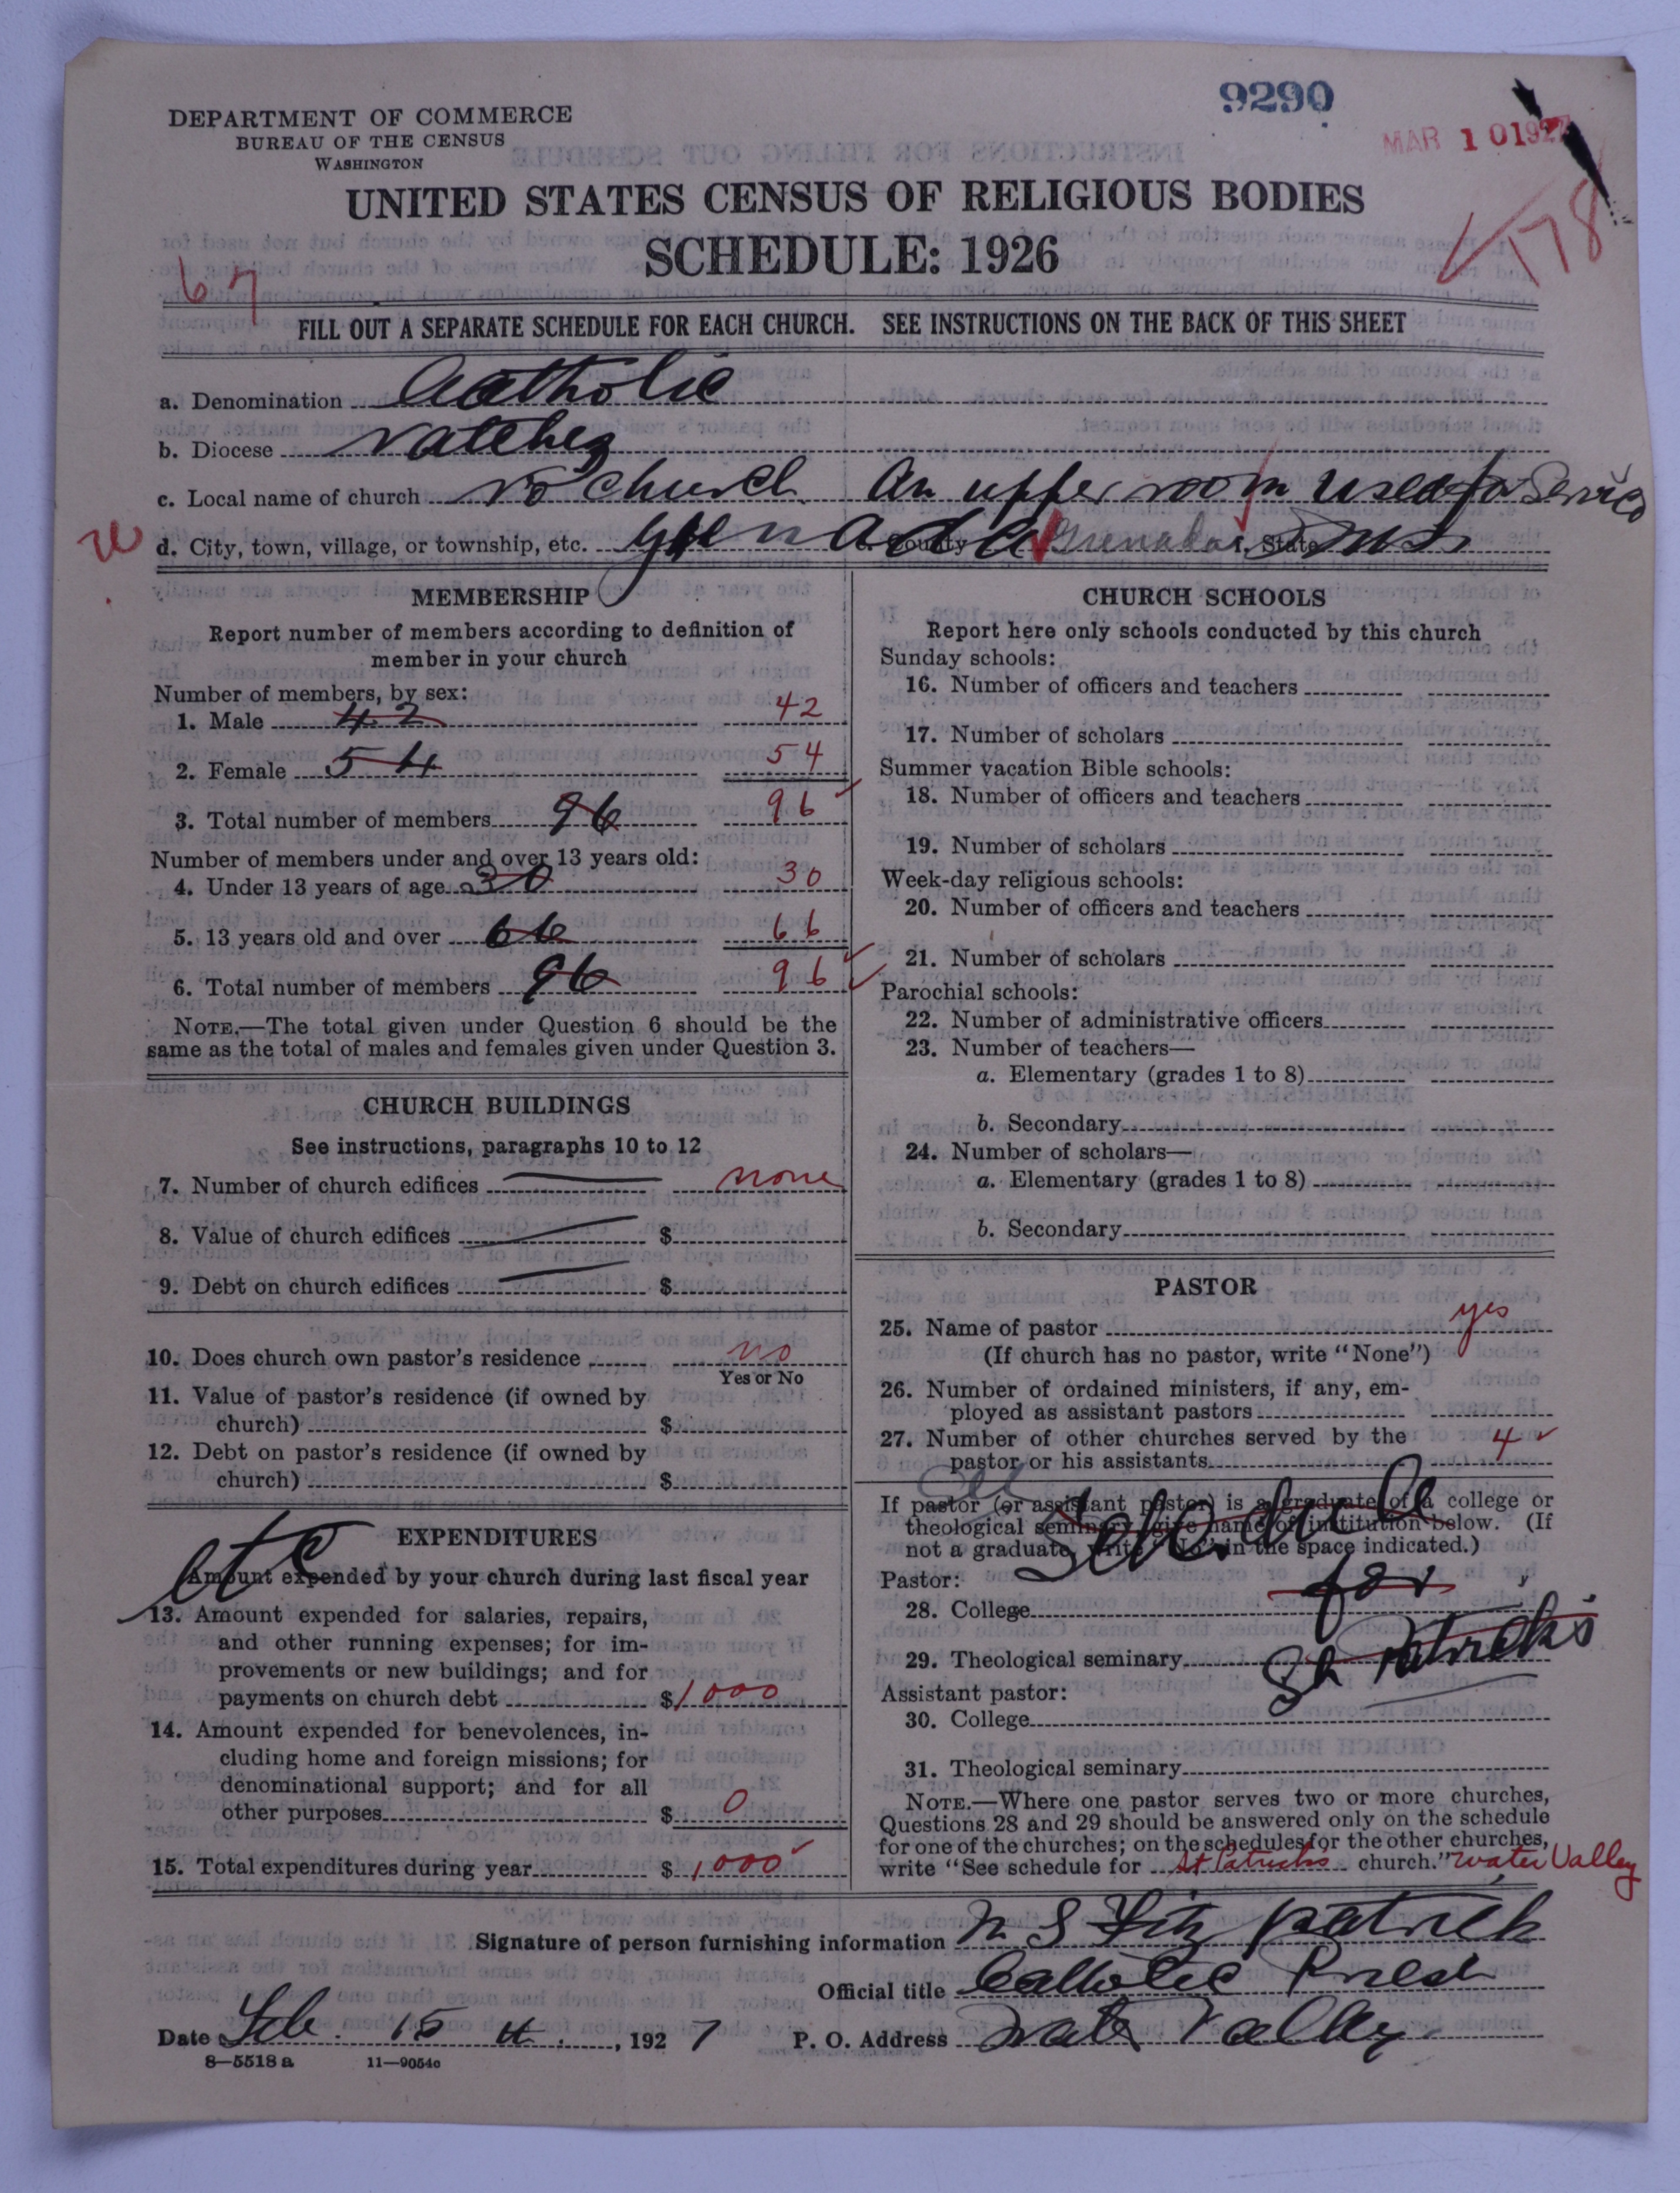 9290
MAR 10 1927
178
DEPARTMENT OF COMMERCE
BUREAU OF THE CENSUS
WASHINGTON
UNITED STATES CENSUS OF RELIGIOUS BODIES
SCHEDULE: 1926
67
FILL OUT A SEPARATE SCHEDULE FOR EACH CHURCH. SEE INSTRUCTIONS ON THE BACK OF THIS SHEET
a. Denomination Catholic
b. Diocese Natchez
c. Local name of church No church An upper room used for Service
d. City, town, village, or township, etc. Grenada e. County Grenada f. State Miss
MEMBERSHIP
Report number of members according to definition of
member in your church
Number of members, by sex:
1. Male 42 42
2. Female 54 54
3. Total number of members 96 96
Number of members under and over 13 years old:
4. Under 13 years of age 30 30
5. 13 years old and over 66 66
6. Total number of members 96 96
NOTE.—The total given under Question 6 should be the
same as the total of males and females given under Question 3.
CHURCH BUILDINGS
See instructions, paragraphs 10 to 12
7. Number of church edifices none
8. Value of church edifices $
9. Debt on church edifices $
10. Does church own pastor's residence no
Yes or No
11. Value of pastor's residence (if owned by
church) $
12. Debt on pastor's residence (if owned by
church) $
etc
EXPENDITURES
Amount expended by your church during last fiscal year
13. Amount expended for salaries, repairs,
and other running expenses; for im-
provements or new buildings; and for
payments on church debt $1000
14. Amount expended for benevolences, in-
cluding home and foreign missions; for
denominational support; and for all
other purposes $ 0
15. Total expenditures during year $ 1000
CHURCH SCHOOLS
Report here only schools conducted by this church
Sunday schools:
16. Number of officers and teachers
17. Number of scholars
Summer vacation Bible schools:
18. Number of officers and teachers
19. Number of scholars
Week-day religious schools:
20. Number of officers and teachers
21. Number of scholars
Parochial schools:
22. Number of administrative officers
23. Number of teachers—
a. Elementary (grades 1 to 8)
b. Secondary
24. Number of scholars—
a. Elementary (grades 1 to 8)
b. Secondary
PASTOR
25. Name of pastor yes
(If church has no pastor, write "None")
26. Number of ordained ministers, if any, em-
ployed as assistant pastors
27. Number of other churches served by the 4
pastor or his assistants
If pastor (or assistant pastor) is a graduate of a college or
theological seminary, give name of institution below. (If
not a graduate, write "No" in the space indicated.)
Schedule
Pastor:
for
28. College
29. Theological seminary St Patrick's
Assistant pastor:
30. College
31. Theological seminary
NOTE.—Where one pastor serves two or more churches,
Questions 28 and 29 should be answered only on the schedule
for one of the churches; on the schedules for the other churches,
write "See schedule for St Patrick's church." Water Valley
Signature of person furnishing information N S Fitz patrick
Official title Catholic Priest
Date Feb. 15 th, 1927 P. O. Address Water Valley
8—5518 a 11—9054c